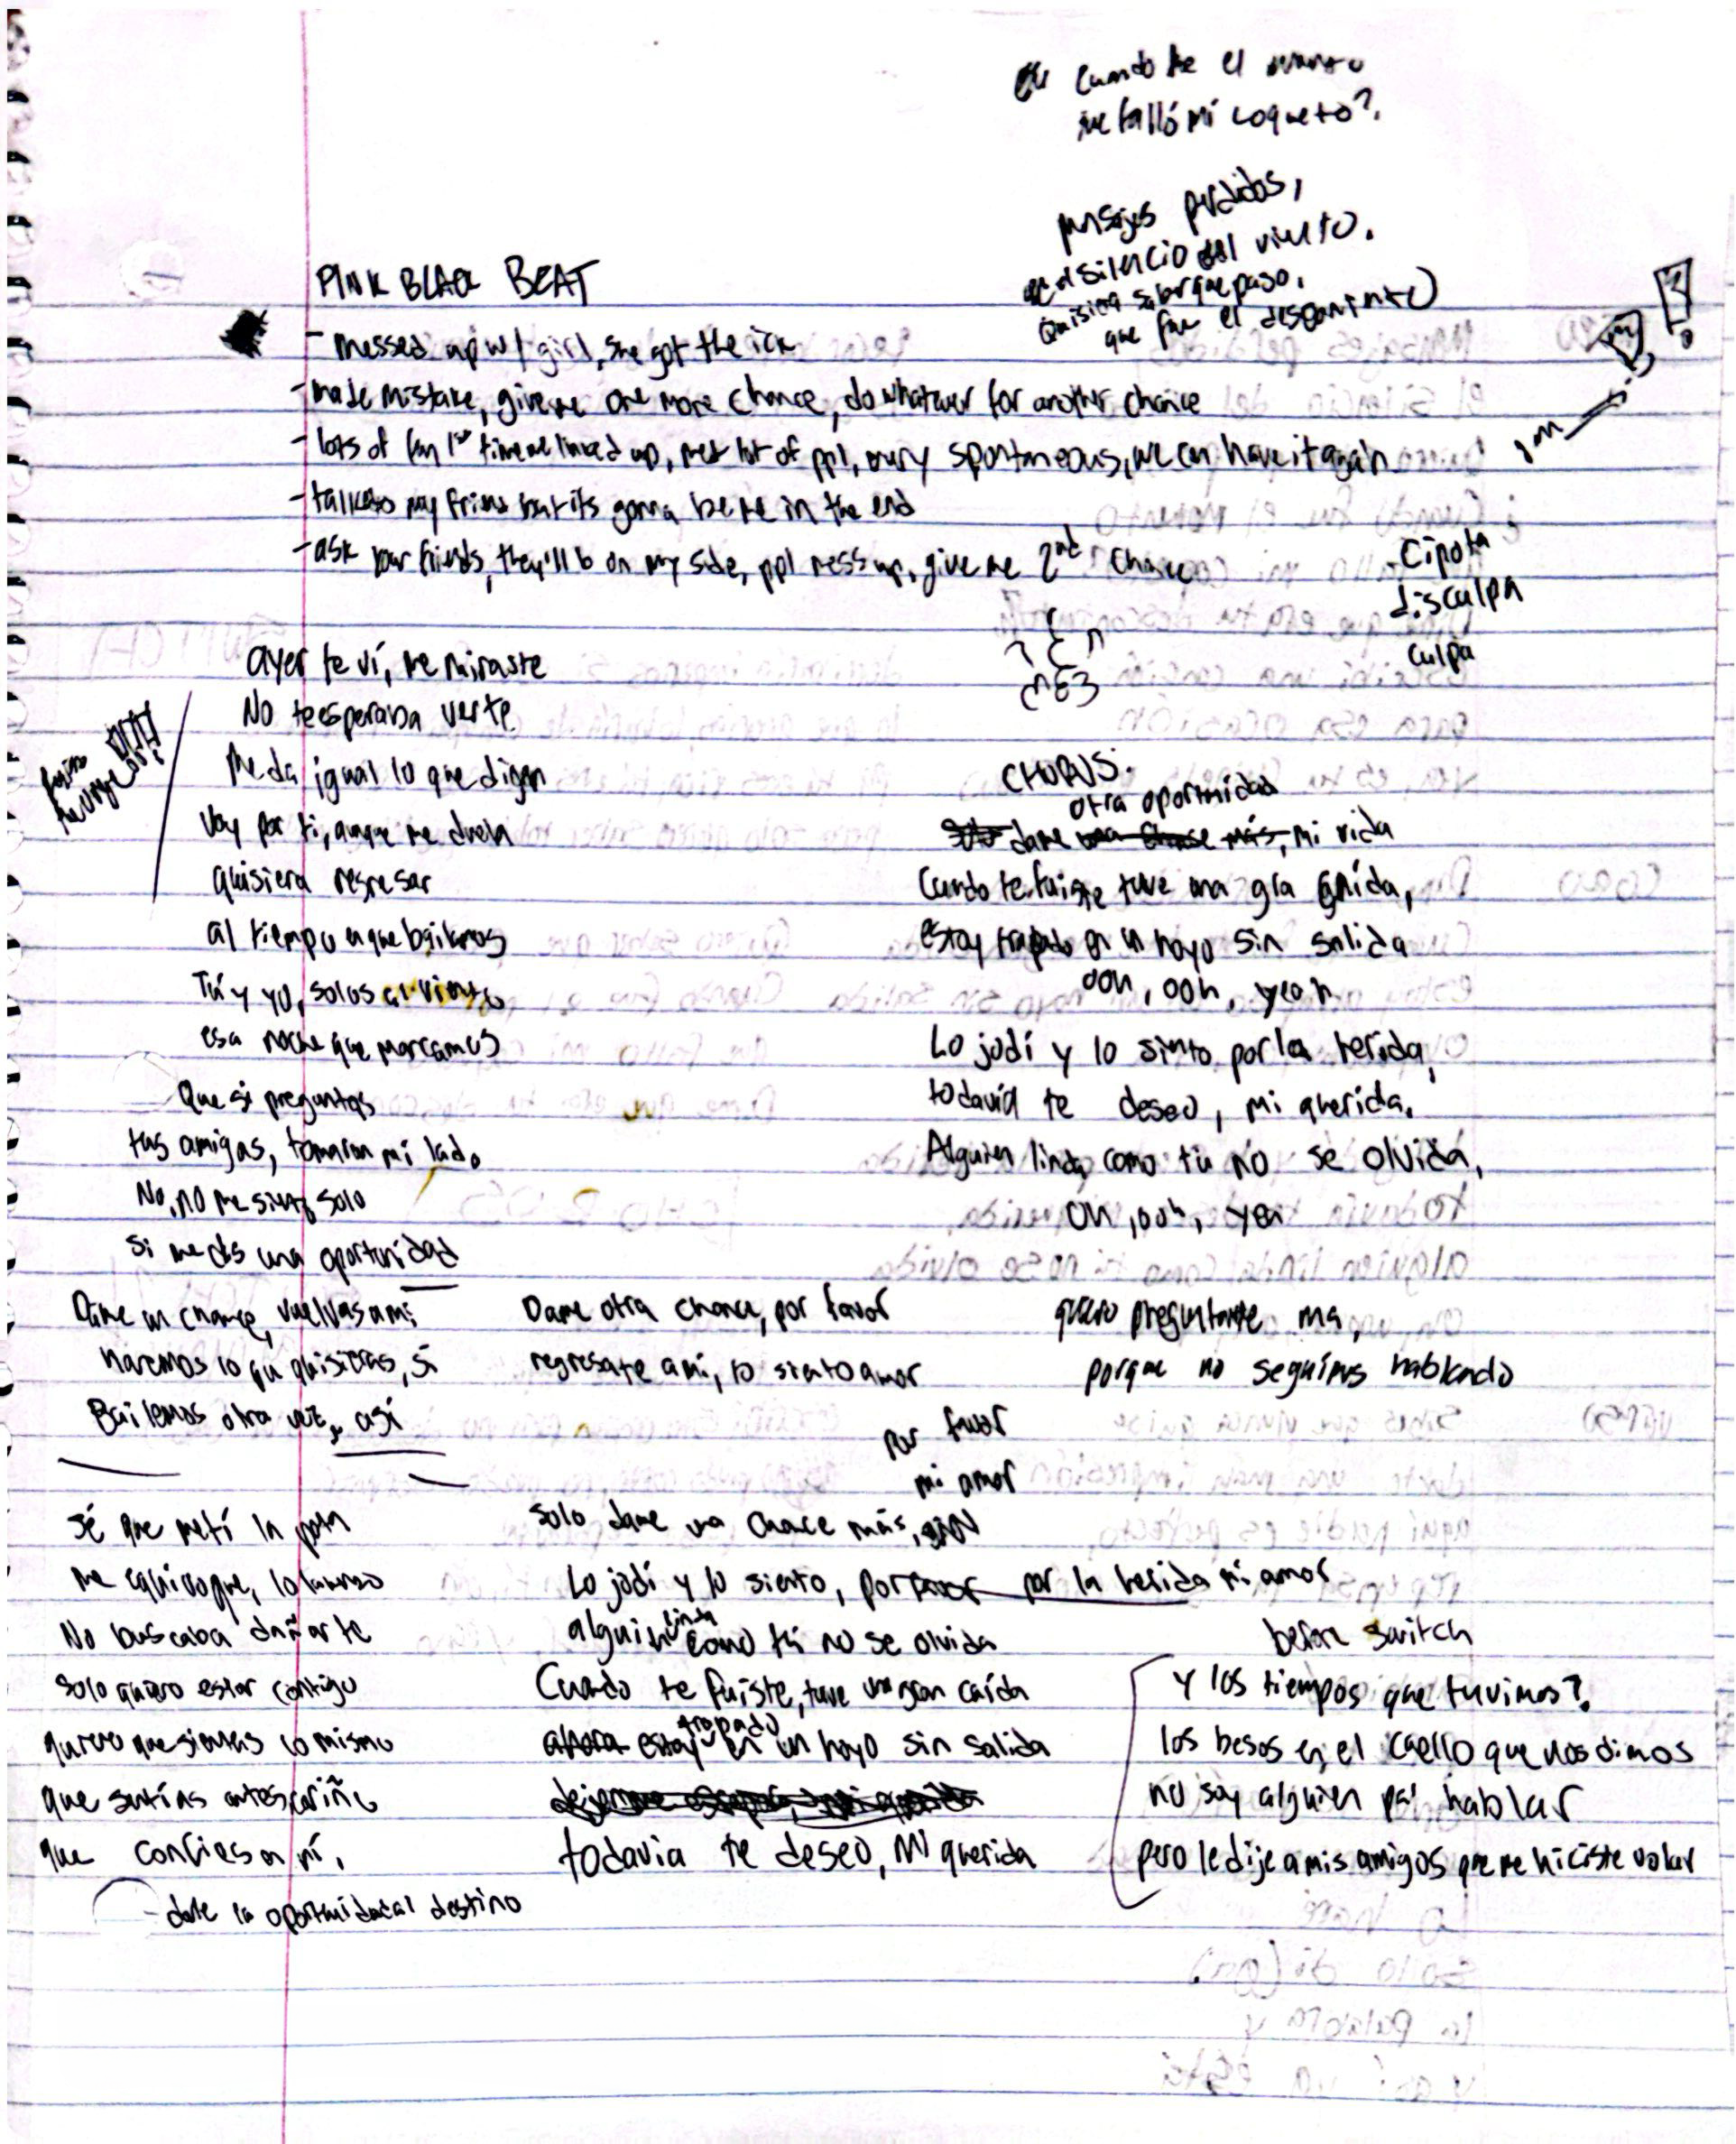 cuando fue el
que falló mi coqueto?.
mensajes perdidos,
en el silencio del viento.
Quisiera saber que paso,
que fue el descontento
PINK BLACK BEAT
- messed up w/ girl, she got the ick
- made mistake, give me one more chance, do whatever for another chance
- lots of fun 1st time we linked up, met lot of ppl, very spontaneous, we can have it again
- talk to my friens but its gonna be me in the end
- ask your friends, they'll b on my side, ppl mess up, give me 2nd chance
- Cipota
disculpa
culpa
ayer te ví, me miraste
No te esperaba verte
Me da igual lo que digan
Voy por ti, aunque me duela
quisiera regresar
al tiempo en que bailamos
Tú y yo, solos al viento
esa noche que marcamos
Que si preguntas
tus amigas, tomaron mi lado
No, no me siento solo
Si me das una oportunidad
Dame un chance, vuelvas a mi
haremos lo que quisieras, si
Bailemos otra vez, así
Sé que metí la pata
me equivoque, lo lamento
No buscaba dañarte
solo quiero estar contigo
quiero que sientas lo mismo
que sentías antes cariño
que confies en mí,
- dale la oportunidad al destino
CHORUS:
otra oportunidad
dame una chance más, mi vida
Cuando te fuiste tuve una gran caída,
estoy trapado en un hoyo sin salida
ooh, ooh, yeah
Lo jodí y lo siento por la herida,
todavía te deseo, mi querida,
Alguien linda como tú no se olvida,
Oh, ooh, yea
Dame otra chance, por favor
regresate a mi, lo siento amor
quiero preguntarte ma,
porque no seguimos hablando
por favor
mi amor
solo dame una chance más,
Lo jodi y lo siento, por favor por la herida mi amor
alguien linda como tú no se olvida
Cuando te fuiste, tuve una gran caída
ahora estoy trapado en un hoyo sin salida
todavia te deseo, mi querida
before switch
Y los tiempos que tuvimos?.
los besos en el cuello que nos dimos
no soy alguien pa' hablar
pero le dije a mis amigos que me hiciste volar